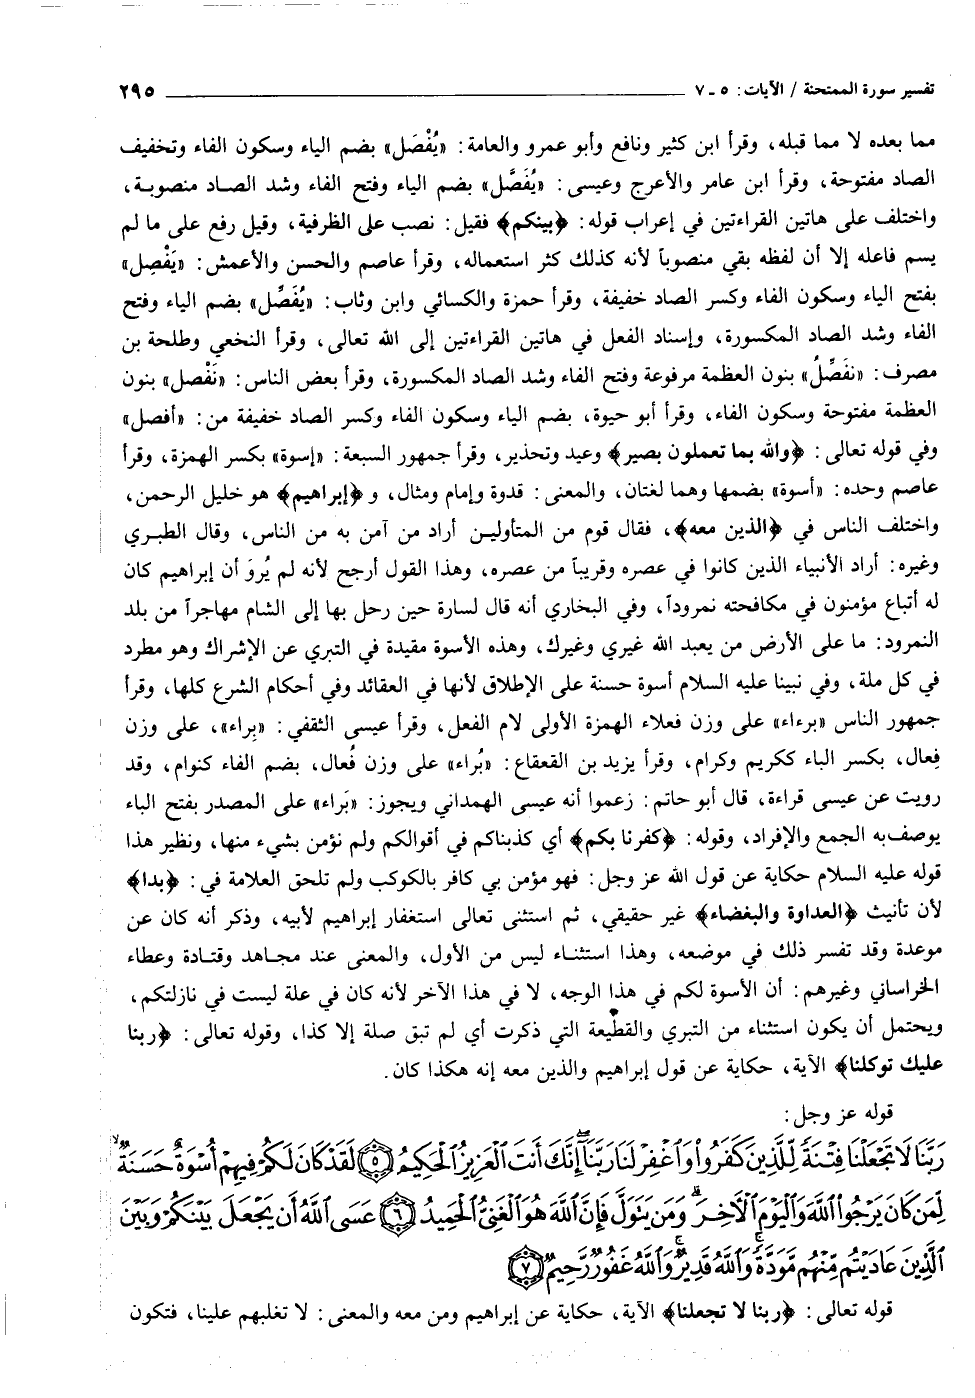 تفسير سورة الممتحنة / الآيات: ٥ ـ ٧ ٢٩٥
مما بعده لا مما قبله، وقرأ ابن كثير ونافع وأبو عمرو والعامة: «يُفْصَل» بضم الياء وسكون الفاء وتخفيف
الصاد مفتوحة، وقرأ ابن عامر والأعرج وعيسى: «يُفَصَّل» بضم الياء وفتح الفاء وشد الصاد منصوبة،
واختلف على هاتين القراءتين في إعراب قوله: ﴿بينكم﴾ فقيل: نصب على الظرفية، وقيل رفع على ما لم
يسم فاعله إلا أن لفظه بقي منصوباً لأنه كذلك كثر استعماله، وقرأ عاصم والحسن والأعمش: «يَفْصِل»
بفتح الياء وسكون الفاء وكسر الصاد خفيفة، وقرأ حمزة والكسائي وابن وثاب: «يُفَصِّل» بضم الياء وفتح
الفاء وشد الصاد المكسورة، وإسناد الفعل في هاتين القراءتين إلى الله تعالى، وقرأ النخعي وطلحة بن
مصرف: «نفَصِّلُ» بنون العظمة مرفوعة وفتح الفاء وشد الصاد المكسورة، وقرأ بعض الناس: «نَفْصل» بنون
العظمة مفتوحة وسكون الفاء، وقرأ أبو حيوة، بضم الياء وسكون الفاء وكسر الصاد خفيفة من: «أفصل»
وفي قوله تعالى: ﴿والله بما تعملون بصير﴾ وعيد وتحذير، وقرأ جمهور السبعة: «إسوة» بكسر الهمزة، وقرأ
عاصم وحده: «أسوة» بضمها وهما لغتان، والمعنى: قدوة وإمام ومثال، و ﴿إبراهيم﴾ هو خليل الرحمن،
واختلف الناس في ﴿الذين معه﴾، فقال قوم من المتأولين أراد من آمن به من الناس، وقال الطبري
وغيره: أراد الأنبياء الذين كانوا في عصره وقريباً من عصره، وهذا القول أرجح لأنه لم يُروَ أن إبراهيم كان
له أتباع مؤمنون في مكافحته نمروداً، وفي البخاري أنه قال لسارة حين رحل بها إلى الشام مهاجراً من بلد
النمرود: ما على الأرض من يعبد الله غيري وغيرك، وهذه الأسوة مقيدة في التبري عن الإشراك وهو مطرد
في كل ملة، وفي نبينا عليه السلام أسوة حسنة على الإطلاق لأنها في العقائد وفي أحكام الشرع كلها، وقرأ
جمهور الناس «برءاء» على وزن فعلاء الهمزة الأولى لام الفعل، وقرأ عيسى الثقفي: «بِراء»، على وزن
فِعال، بكسر الباء ككريم وكرام، وقرأ يزيد بن القعقاع: «بُراء» على وزن فُعال، بضم الفاء كنوام، وقد
رويت عن عيسى قراءة، قال أبو حاتم: زعموا أنه عيسى الهمداني ويجوز: «بَراء» على المصدر بفتح الباء
يوصف به الجمع والإفراد، وقوله: ﴿كفرنا بكم﴾ أي كذبناكم في أقوالكم ولم نؤمن بشيء منها، ونظير هذا
قوله عليه السلام حكاية عن قول الله عز وجل: فهو مؤمن بي كافر بالكوكب ولم تلحق العلامة في: ﴿بدا﴾
لأن تأنيث ﴿العداوة والبغضاء﴾ غير حقيقي، ثم استثنى تعالى استغفار إبراهيم لأبيه، وذكر أنه كان عن
موعدة وقد تفسر ذلك في موضعه، وهذا استثناء ليس من الأول، والمعنى عند مجاهد وقتادة وعطاء
الخراساني وغيرهم: أن الأسوة لكم في هذا الوجه، لا في هذا الآخر لأنه كان في علة ليست في نازلتكم،
ويحتمل أن يكون استثناء من التبري والقطيعة التي ذكرت أي لم تبق صلة إلا كذا، وقوله تعالى: ﴿ربنا
عليك توكلنا﴾ الآية، حكاية عن قول إبراهيم والذين معه إنه هكذا كان.
قوله عز وجل:
رَبَّنَا لَا تَجْعَلْنَا فِتْنَةً لِّلَّذِينَ كَفَرُوا۟ وَٱغْفِرْ لَنَا رَبَّنَآ إِنَّكَ أَنتَ ٱلْعَزِيزُ ٱلْحَكِيمُ ﴿٥﴾ لَقَدْ كَانَ لَكُمْ فِيهِمْ أُسْوَةٌ حَسَنَةٌ
لِّمَن كَانَ يَرْجُوا۟ ٱللَّهَ وَٱلْيَوْمَ ٱلْءَاخِرَ ۚ وَمَن يَتَوَلَّ فَإِنَّ ٱللَّهَ هُوَ ٱلْغَنِىُّ ٱلْحَمِيدُ ﴿٦﴾ عَسَى ٱللَّهُ أَن يَجْعَلَ بَيْنَكُمْ وَبَيْنَ
ٱلَّذِينَ عَادَيْتُم مِّنْهُم مَّوَدَّةً ۚ وَٱللَّهُ قَدِيرٌ ۚ وَٱللَّهُ غَفُورٌ رَّحِيمٌ ﴿٧﴾
قوله تعالى: ﴿ربنا لا تجعلنا﴾ الآية، حكاية عن إبراهيم ومن معه والمعنى: لا تغلبهم علينا، فتكون